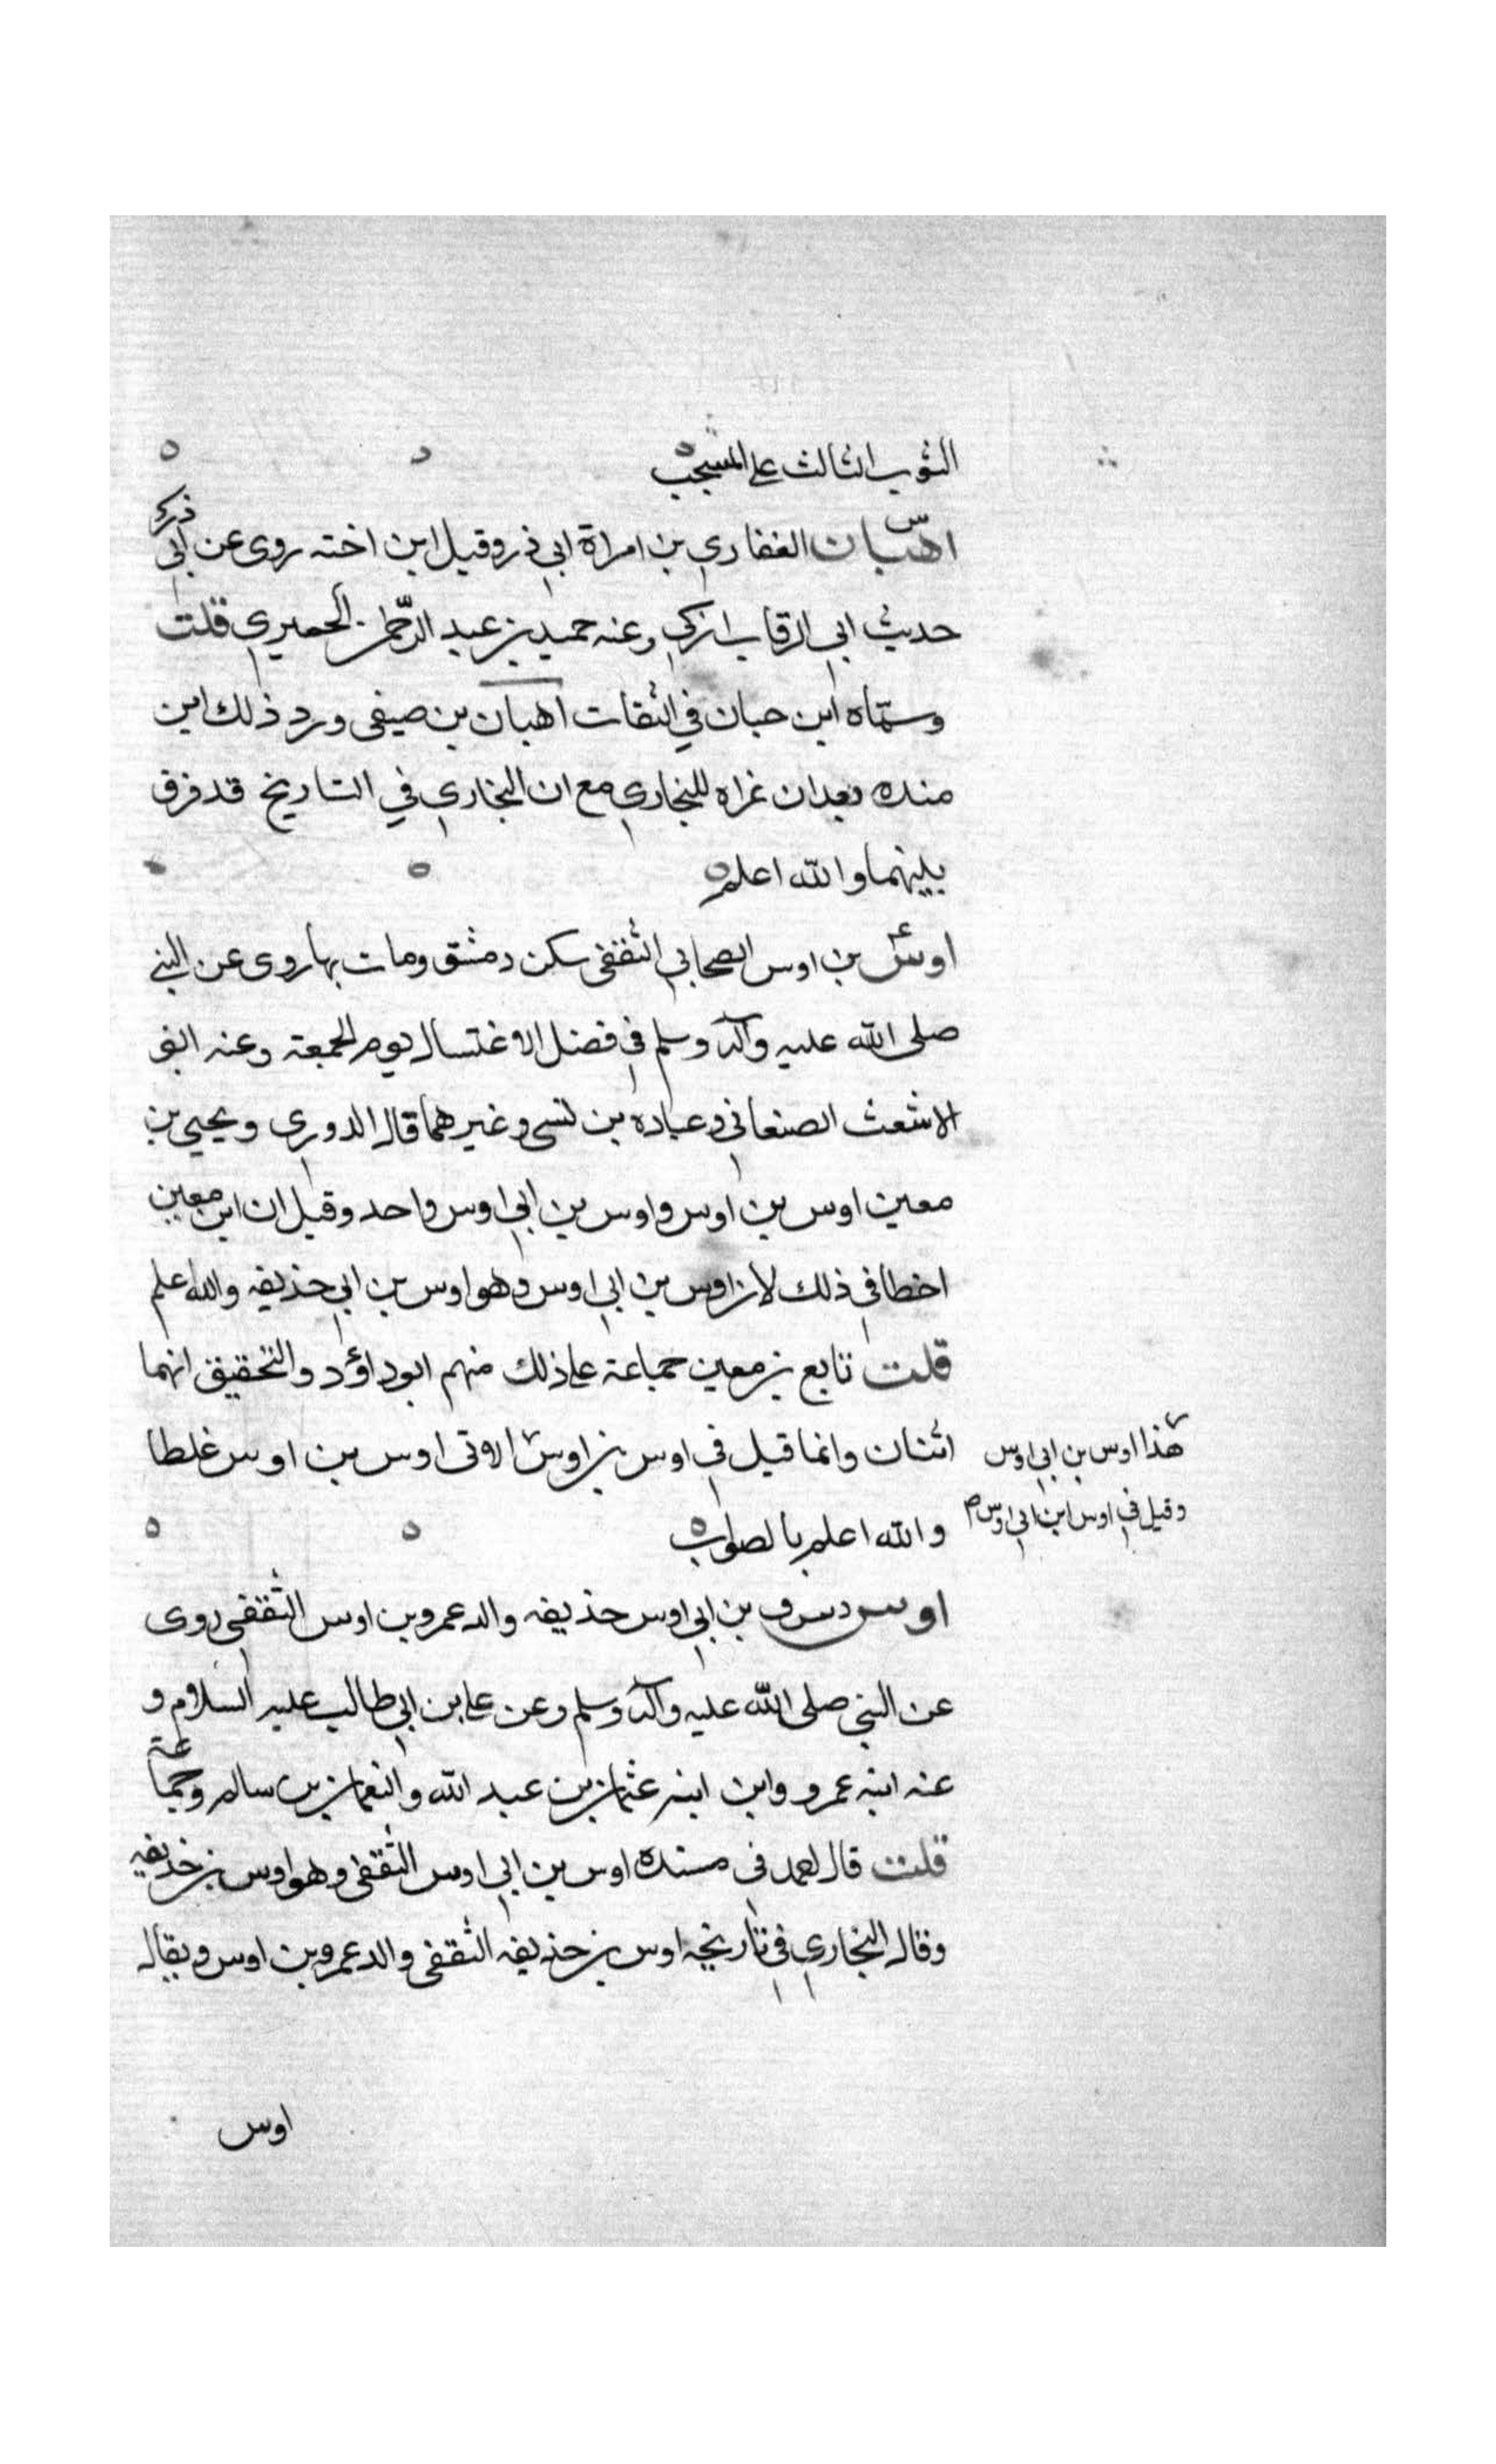 الثوب الثالث على المشجب
اهبان الغفاري بن امراة ابي ذر وقيل ابن اخته روى عن ابي ذر
حديث اي الرقاب ازكى وعنه حميد بن عبد الرحمن الحميري قلت
وسماه ابن حبان في الثقات اهبان بن صيفى ورد ذلك ابن
منده بعد ان عزاه للبخاري مع ان البخاري في التاريخ قد فرق
بينهما والله اعلم
اوس بن اوس الصحابي الثقفى سكن دمشق ومات بها روى عن النبي
صلى الله عليه وآله وسلم في فضل الاغتسال يوم الجمعة وعنه ابو
الاشعث الصنعاني وعباده بن نسى وغيرهما قال الدورى ويحيى بن
معين اوس بن اوس واوس بن ابي اوس واحد وقيل ان ابن معين
اخطا في ذلك لان اوس بن ابي اوس وهو اوس بن ابي حذيفه والله اعلم
قلت تابع بن معين جماعة على ذلك منهم ابو داؤد والتحقيق انهما
اثنان وانما قيل في اوس بن اوس الاتى اوس بن اوس غلطا
هذا اوس بن ابي اوس
وقيل في اوس ابن ابي اوس
والله اعلم بالصواب
اوس دس ق بن ابي اوس حذيفه والد عمرو بن اوس الثقفى روى
عن النبي صلى الله عليه وآله وسلم وعن على بن ابي طالب عليه السلام و
عنه ابنه عمرو وابن ابنه عثمان بن عبد الله والنعمان بن سالم وجماعة
قلت قال احمد فى مسنده اوس بن ابي اوس الثقفى وهو اوس بن حذيفه
وقال البخاري في تاريخه اوس بن حذيفه الثقفى والد عمرو بن اوس ويقال
اوس